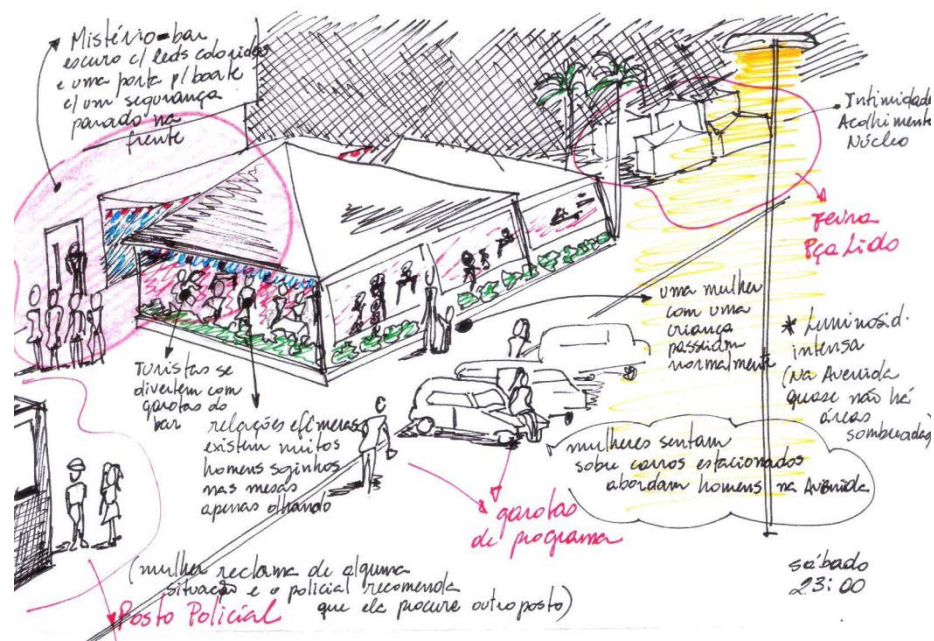 Mistério = bar
escuro c/ leds coloridos
e uma porta p/ boate
c/ um segurança
parado na
frente
Intimidade
Acolhimento
Núcleo
Feira
Pça Lido
uma mulher
com uma
criança
passeiam
normalmente
* Luminosid.
intensa
(Na Avenida
quase não há
áreas
sombreadas)
Turistas se
divertem com
garotas do
bar
relações efêmeras
existem muitos
homens sozinhos
nas mesas
apenas olhando
mulheres sentam
sobre carros estacionados
abordam homens na Avenida
garotas
de programa
(mulher reclama de alguma
situação e o policial recomenda
que ela procure outro posto)
Posto Policial
sábado
23:00